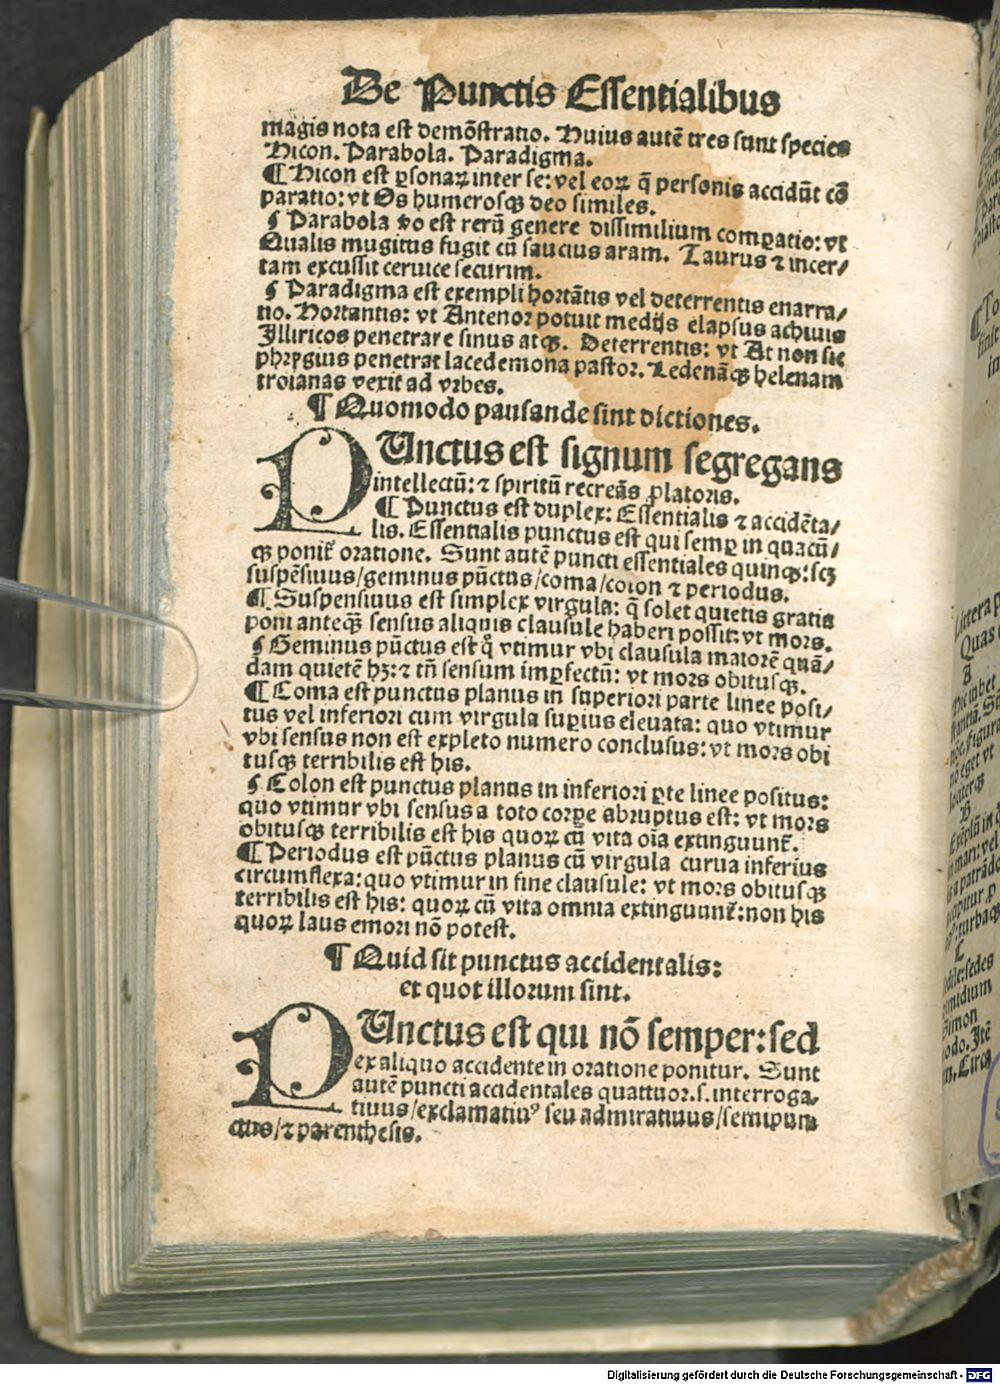 De Punctis Essentialibus
magis nota est demōstratio. Huius autē tres sunt species
Hicon. Parabola. Paradigma.
¶ Hicon est ꝑsonaꝝ inter se: vel eoꝝ q̄ personis accidūt cō
paratio: vt Os humerosqꝫ deo similes.
¶ Parabola ꝟo est rerū genere dissimilium comꝑatio: vt
Qualis mugitus fugit cū saucius aram. Taurus ⁊ incer/
tam excussit ceruice securim.
¶ Paradigma est exempli hortātis vel deterrentis enarra/
tio. Hortantis: vt Antenor potuit medijs elapsus achiuis
Illiricos penetrare sinus atqꝫ. Deterrentis: vt At non sic
phrygius penetrat lacedemona pastor. Ledenāqꝫ helenam
troianas vexit ad vrbes.
¶ Quomodo pausande sint dictiones.
PUnctus est signum segregans
intellectū: ⁊ spiritū recreās ꝓlatoris.
¶ Punctus est duplex: Essentialis ⁊ accidēta/
lis. Essentialis punctus est qui semꝑ in quacū/
qꝫ ponit᷑ oratione. Sunt autē puncti essentiales quinqꝫ: scꝫ
suspēsiuus/geminus pūctus/coma/colon ⁊ periodus.
¶ Suspensiuus est simplex virgula: q̄ solet quietis gratia
poni anteqꝫ sensus aliquis clausule haberi possit: vt mors.
¶ Geminus pūctus est qͦ vtimur vbi clausula maiorē quā/
dam quietē hꝫ: ⁊ tn̄ sensum imꝑfectū: vt mors obitusqꝫ.
¶ Coma est punctus planus in superiori parte linee posi/
tus vel inferiori cum virgula suꝑius eleuata: quo vtimur
vbi sensus non est expleto numero conclusus: vt mors obi
tusqꝫ terribilis est his.
¶ Colon est punctus planus in inferiori ꝑte linee positus:
quo vtimur vbi sensus a toto corꝑe abruptus est: vt mors
obitusqꝫ terribilis est his quoꝝ cū vita oīa extinguunt᷑.
¶ Periodus est pūctus planus cū virgula curua inferius
circumflexa: quo vtimur in fine clausule: vt mors obitusqꝫ
terribilis est his: quoꝝ cū vita omnia extinguunt᷑: non his
quoꝝ laus emori nō potest.
¶ Quid sit punctus accidentalis:
et quot illorum sint.
PUnctus est qui nō semper: sed
ex aliquo accidente in oratione ponitur. Sunt
autē puncti accidentales quattuor. s. interroga-
tiuus/exclamatiuꝰ seu admiratiuus/semipun
ctus/⁊ parenthesis.
Littera p
Quas
A
B
Digitalisierung gefördert durch die Deutsche Forschungsgemeinschaft - DFG